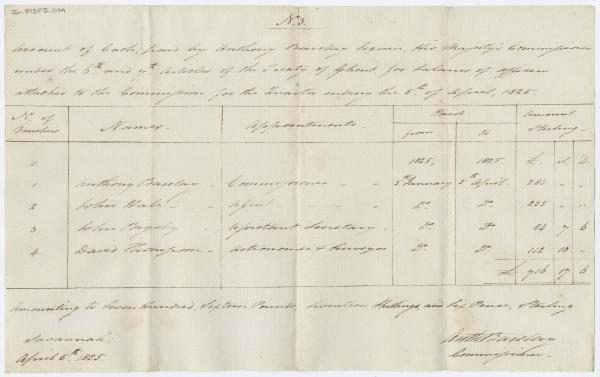 No. 3.
Account of Cash, paid by Anthony Barclay Esquire, His Majesty's Commissioner
under the 6th and 7th Articles of the Treaty of Ghent, for Salaries of Officers
attached to the Commission, for the Quarter ending the 5th of April, 1825.
No. of Vouchers Names. Appointments. Paid Amount Sterling.
from to
1825, 1825 £. s. D.
1 Anthony Barclay Commissioner 5th January 5th April. 285 " "
2 John Hale Agent Do. Do. 235 " "
3 John Bigsby Assistant Secretary Do. Do. 84 7 6
4 David Thompson Astronomer & Surveyor Do. Do. 112 10 "
£ 716 17 6
Amounting to Seven Hundred, Sixteen Pounds, Seventeen Shillings, and Six Pence, Sterling
Savannah:
April 5th. 1825.
Anth: Barclay
Commissioner.